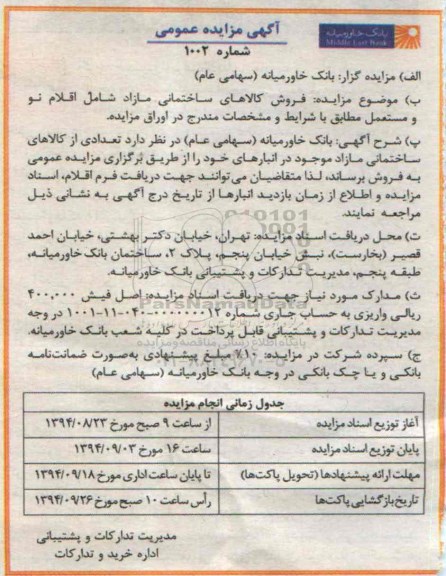 آگهی مزایده عمومی
شماره ۱۰۰۲
بانک خاورمیانه
Middle East Bank
الف) مزایده گزار: بانک خاورمیانه (سهامی عام)
ب) موضوع مزایده: فروش کالاهای ساختمانی مازاد شامل اقلام نو
و مستعمل مطابق با شرایط و مشخصات مندرج در اوراق مزایده.
پ) شرح آگهی: بانک خاورمیانه (سهامی عام) در نظر دارد تعدادی از کالاهای
ساختمانی مازاد موجود در انبارهای خود را از طریق برگزاری مزایده عمومی
به فروش برساند، لذا متقاضیان می‌توانند جهت دریافت فرم اقلام، اسناد
مزایده و اطلاع از زمان بازدید انبارها از تاریخ درج آگهی به نشانی ذیل
مراجعه نمایند.
ت) محل دریافت اسناد مزایده: تهران، خیابان دکتر بهشتی، خیابان احمد
قصیر (بخارست)، نبش خیابان پنجم، پلاک ۲، ساختمان بانک خاورمیانه،
طبقه پنجم، مدیریت تدارکات و پشتیبانی بانک خاورمیانه.
ث) مدارک مورد نیاز جهت دریافت اسناد مزایده: اصل فیش ۴۰۰,۰۰۰
ریالی واریزی به حساب جاری شماره در وجه
مدیریت تدارکات و پشتیبانی قابل پرداخت در کلیه شعب بانک خاورمیانه.
ج) سپرده شرکت در مزایده: ۱۰٪ مبلغ پیشنهادی به‌صورت ضمانت‌نامه
بانکی و یا چک بانکی در وجه بانک خاورمیانه (سهامی عام)
جدول زمانی انجام مزایده
آغاز توزیع اسناد مزایده از ساعت ۹ صبح مورخ ۱۳۹۴/۰۸/۲۳
پایان توزیع اسناد مزایده ساعت ۱۶ مورخ ۱۳۹۴/۰۹/۰۳
مهلت ارائه پیشنهادها (تحویل پاکت‌ها) تا پایان ساعت اداری مورخ ۱۳۹۴/۰۹/۱۸
تاریخ بازگشایی پاکت‌ها رأس ساعت ۱۰ صبح مورخ ۱۳۹۴/۰۹/۲۶
مدیریت تدارکات و پشتیبانی
اداره خرید و تدارکات